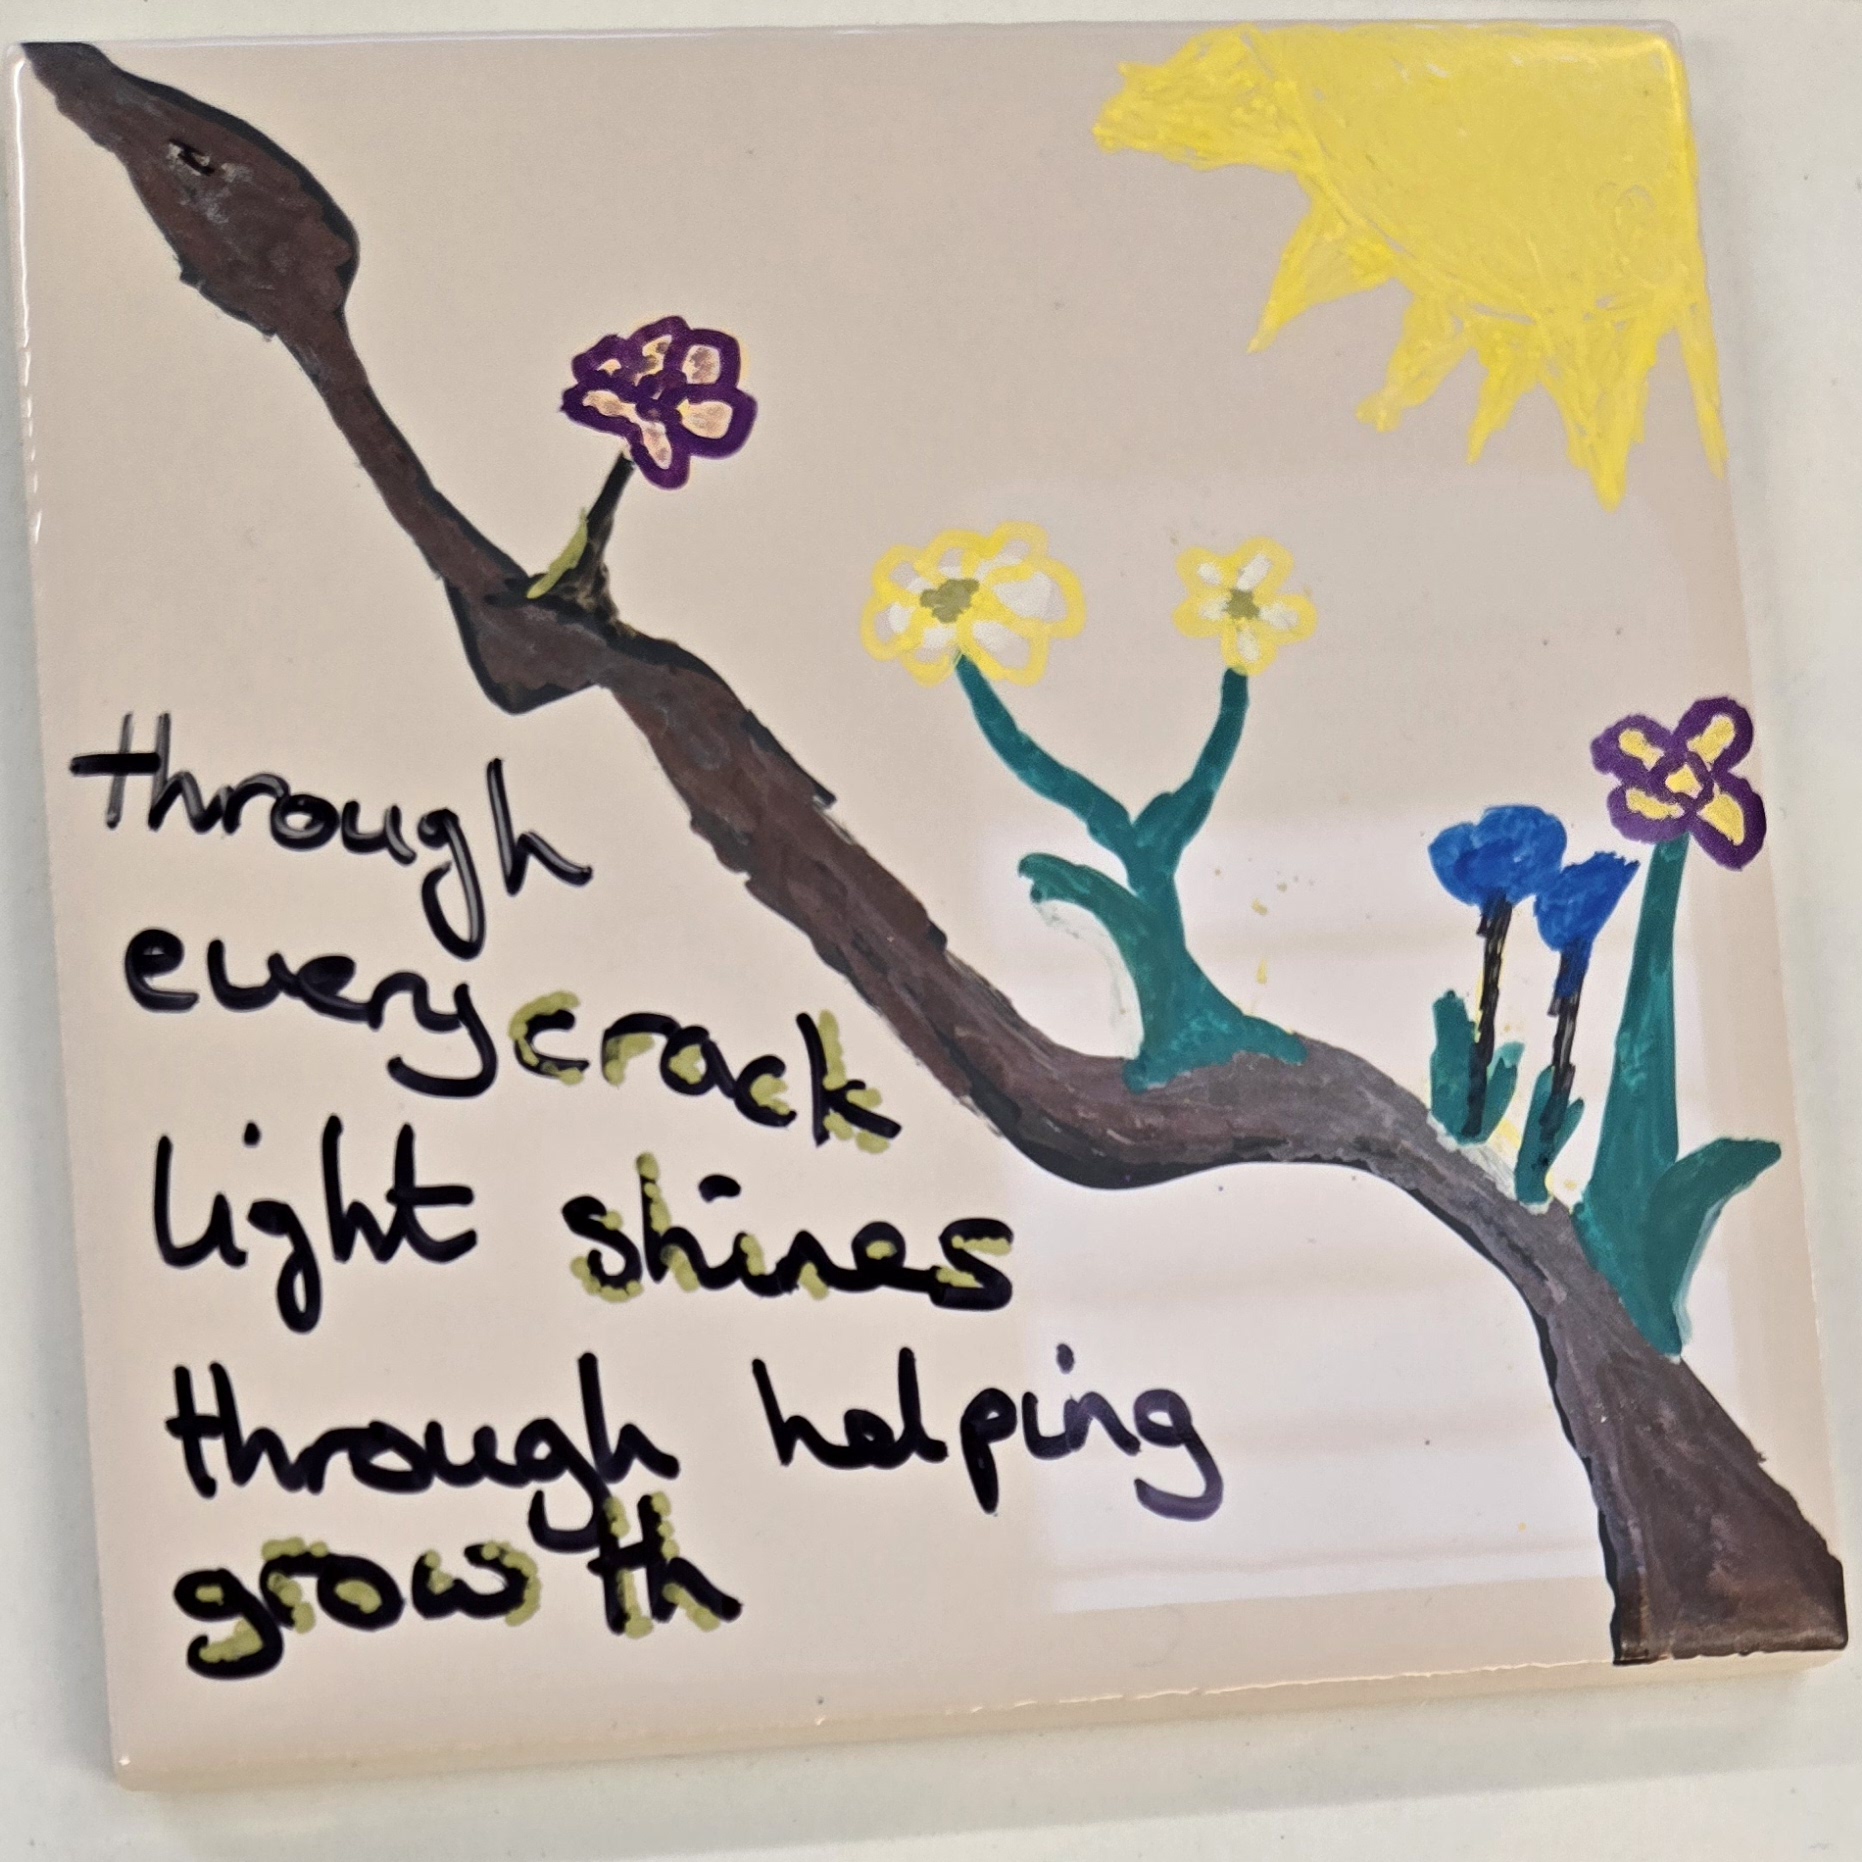 through
every crack
light shines
through helping
growth